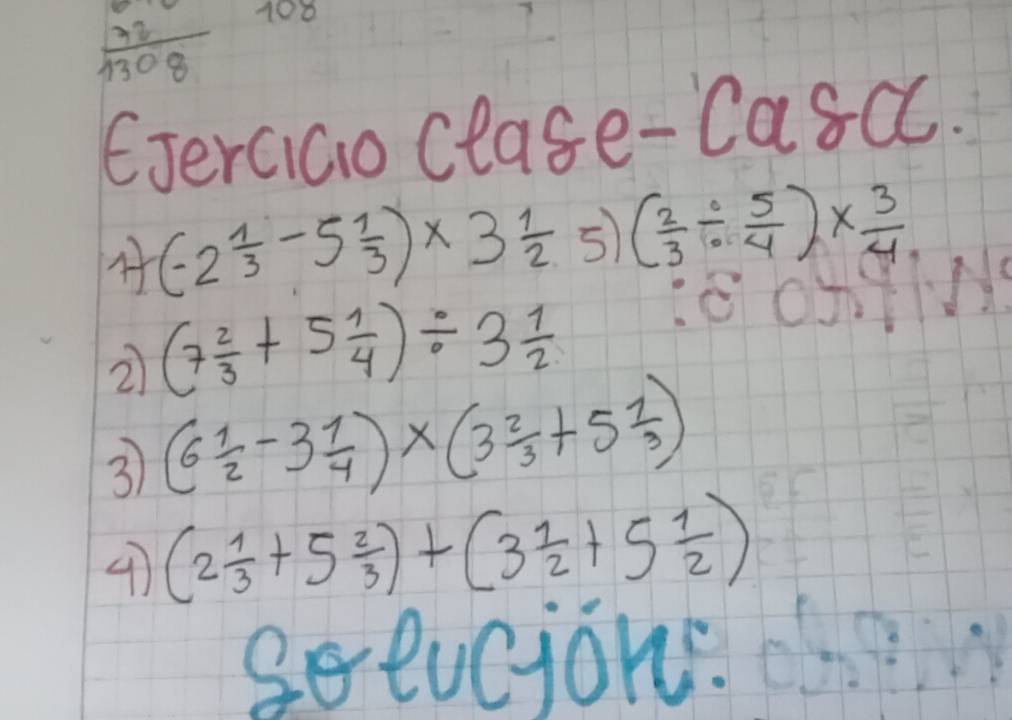 108
1308
Ejercicio Clase-Casa.
1) (-2 1/3 - 5 1/3) × 3 1/2 5) (2/3 ÷ 5/4) × 3/4
2) (7 2/3 + 5 1/4) ÷ 3 1/2
3) (6 1/2 - 3 1/4) × (3 2/3 + 5 1/3)
4) (2 1/3 + 5 2/3) + (3 1/2 + 5 1/2)
Solución: